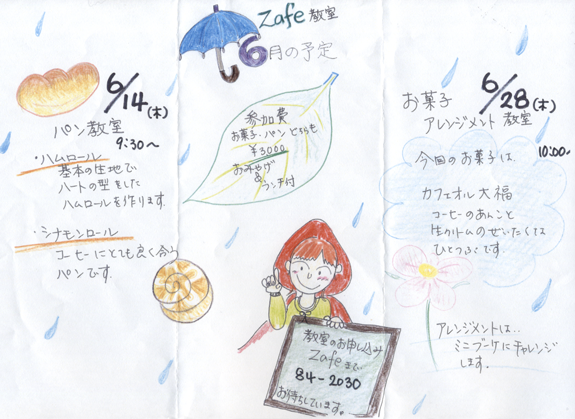 Zafe 教室
6月の予定
6/14(木)
パン教室
9:30〜
・ハムロール
基本の生地で
ハートの型をした
ハムロールを作ります。
・シナモンロール
コーヒーにとても良く合う
パンです。
参加費
お菓子・パンどちらも
¥3000
おみやげ
&
ランチ付
教室のお申し込み
Zafeまで
84-2030
お待ちしています。
6/28(木)
お菓子
アレンジメント教室
10:00〜
今回のお菓子は
カフェオレ大福
コーヒーのあんこと
生クリームのぜいたくな
ひとつぶです。
アレンジメントは...
ミニブーケにチャレンジ
します。